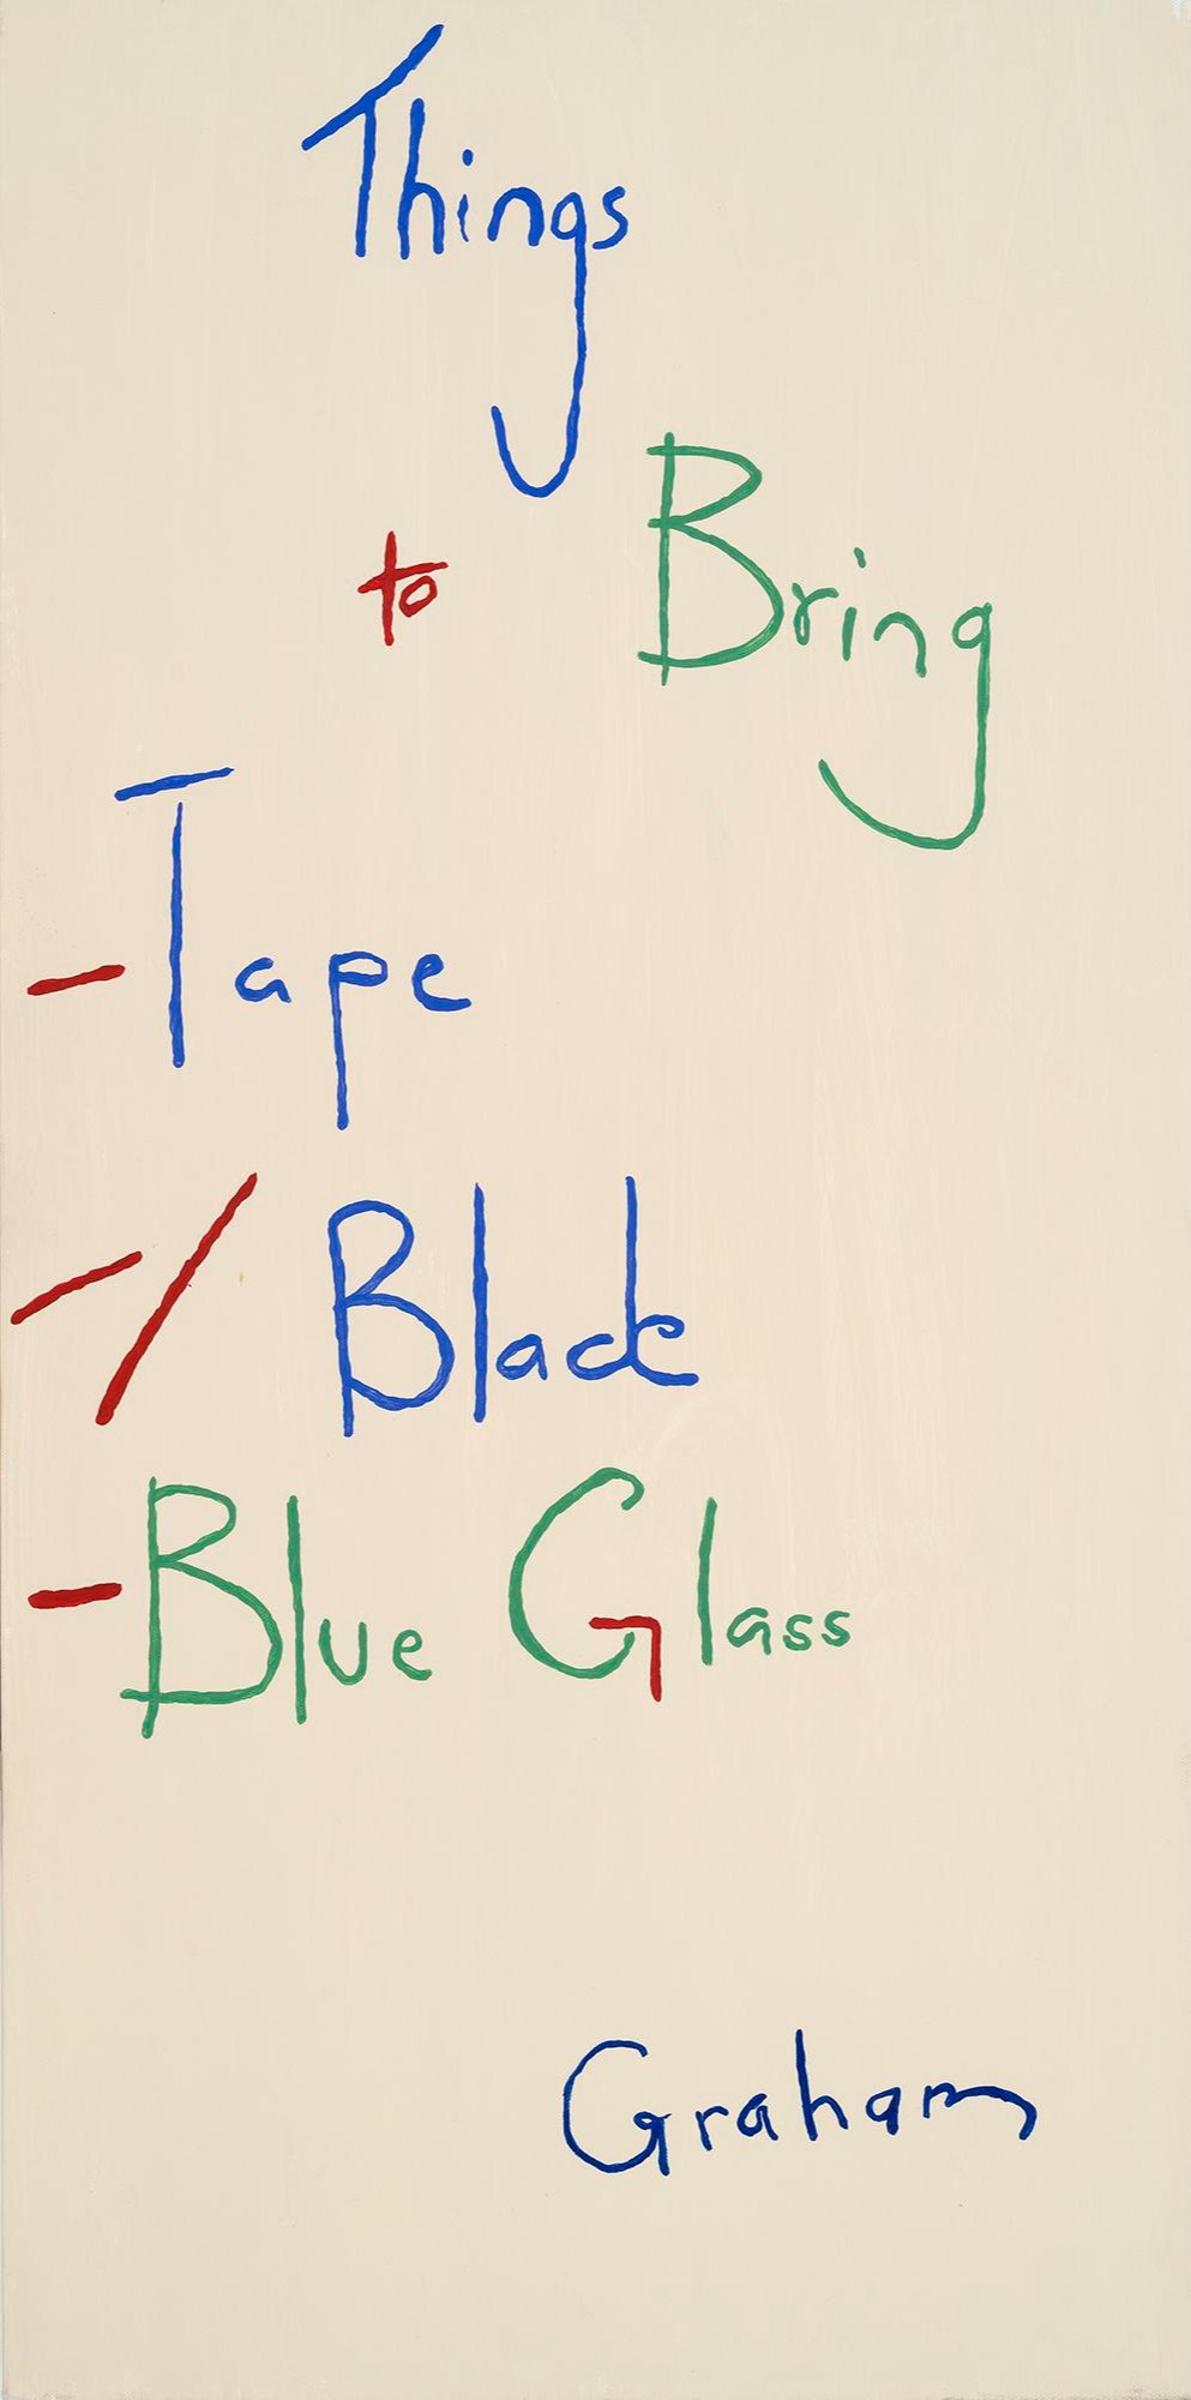 Things
to Bring
-Tape
-/ Black
-Blue Glass
Graham